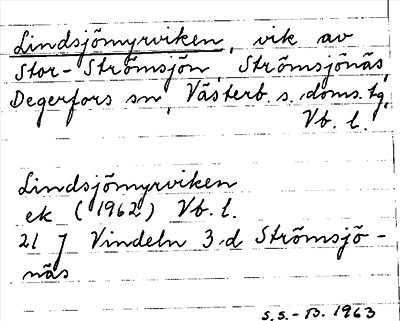 Lindsjömyrviken, vik av
Stor-Strömsjön, Strömsjönäs,
Degerfors sn, Västerb. s. doms.tg,
Vb. l.
Lindsjömyrviken
ek (1962) Vb. l.
21 J Vindeln 3 d Strömsjö-
näs
S.S.-B. 1963